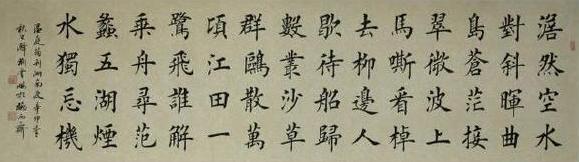 澹然空水
對斜暉曲
島蒼茫接
翠微波上
馬嘶看棹
去柳邊人
歇待船歸
數叢沙草
群鷗散萬
頃江田一
鷺飛誰解
乘舟尋范
蠡五湖煙
水獨忘機
温庭筠利洲南渡辛卯